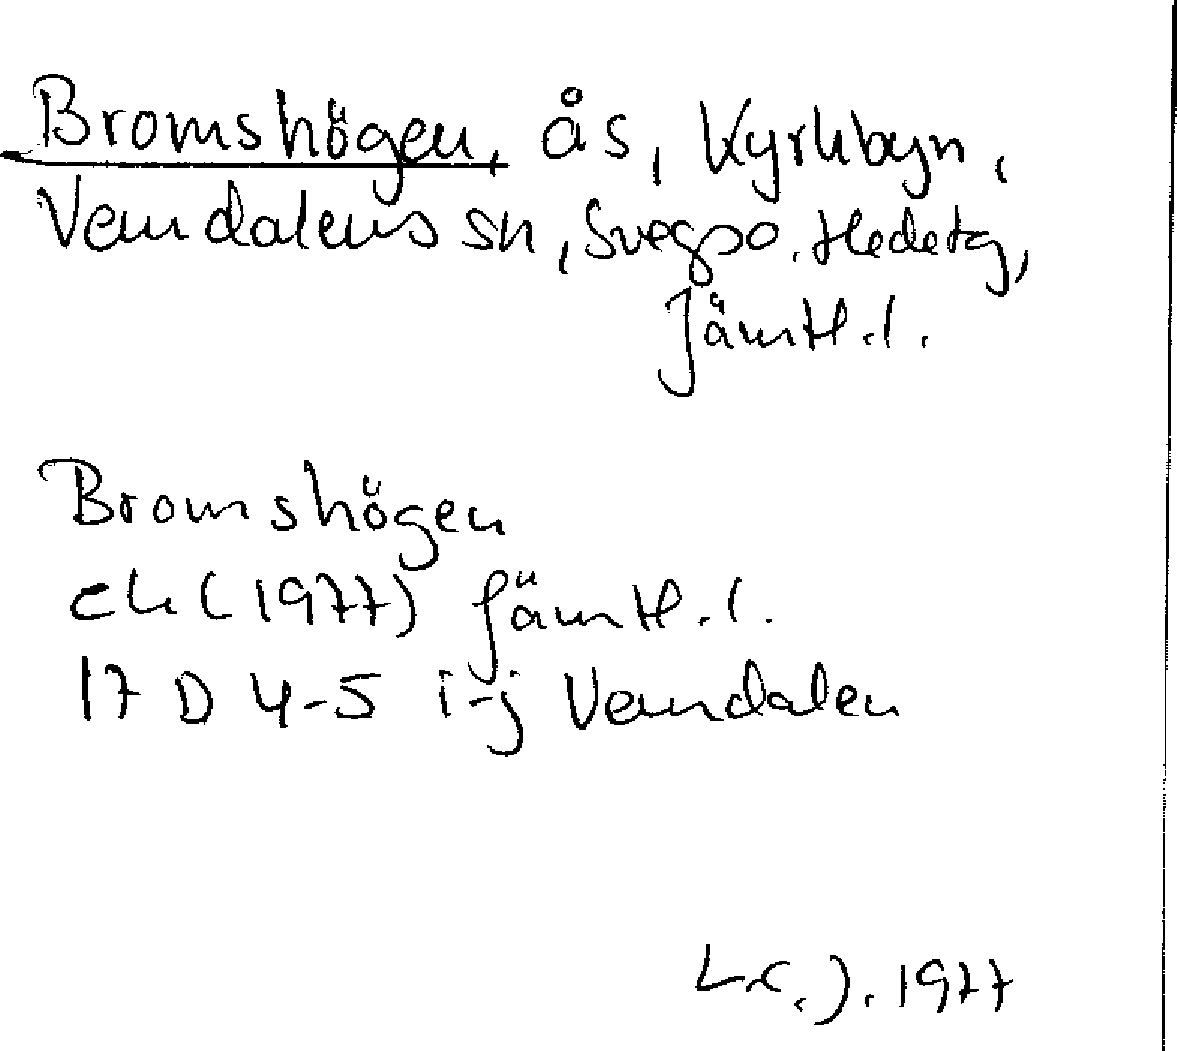 Bromshögen, ås, Kyrkbyn,
Vemdalens sn, Svegs po. Hedetg,
Jämtl.l.
Bromshögen
ek (1977) Jämtl.l.
17 D 4-5 i-j Vemdalen
J. 1977